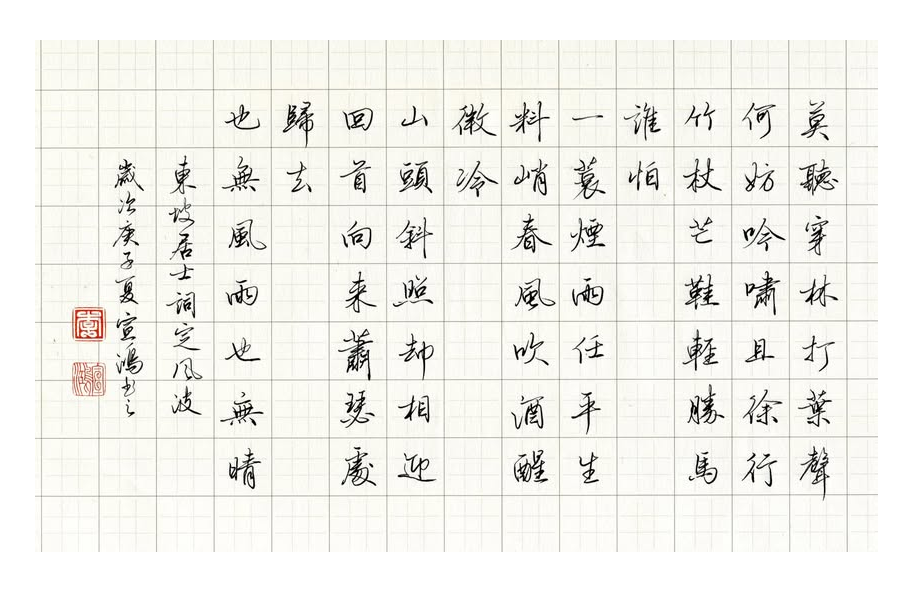 莫聽穿林打葉聲
何妨吟嘯且徐行
竹杖芒鞋輕勝馬
誰怕
一蓑煙雨任平生
料峭春風吹酒醒
微冷
山頭斜照却相迎
回首向来蕭瑟處
歸去
也無風雨也無晴
東坡居士詞定风波
歲次庚子夏宣鴻書之